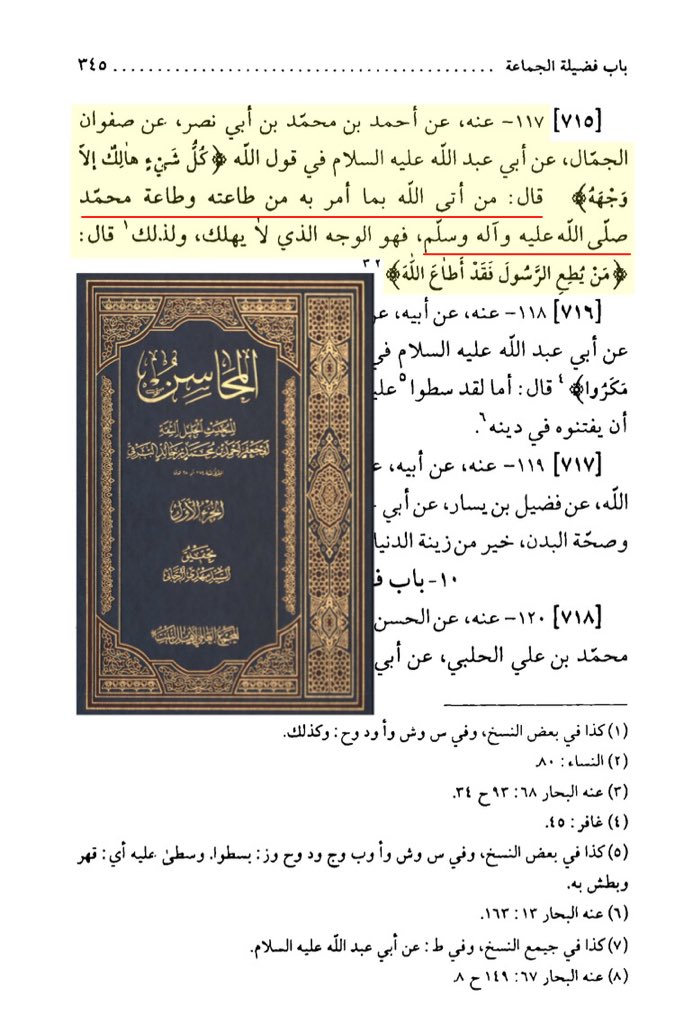 باب فضيلة الجماعة ........................................... ٣٤٥
[٧١٥] ١١٧- عنه، عن أحمد بن محمّد بن أبي نصر، عن صفوان
الجمّال، عن أبي عبد اللّه عليه السلام في قول اللّه ﴿كُلُّ شَيْءٍ هالِكٌ إلاّ
وَجْهَهُ﴾ قال: من أتى اللّه بما أمر به من طاعته وطاعة محمّد
صلّى اللّه عليه وآله وسلّم، فهو الوجه الذي لا يهلك، ولذلك١ قال:
﴿مَنْ يُطِعِ الرَّسُولَ فَقَدْ أَطاعَ اللّهَ﴾٢ ٣
[٧١٦] ١١٨- عنه، عن أبيه، عن
عن أبي عبد اللّه عليه السلام في
مَكَرُوا﴾٤ قال: أما لقد سطوا٥ علي
أن يفتنوه في دينه٦.
[٧١٧] ١١٩- عنه، عن أبيه، ع
اللّه، عن فضيل بن يسار، عن أبي
وصحّة البدن، خير من زينة الدنيا
١٠- باب ف
[٧١٨] ١٢٠- عنه، عن الحسن
محمّد بن علي الحلبي، عن أبي
المحاسن
للمحدث الجليل الثقة
أبي جعفر أحمد بن محمد بن خالد البرقي
الجزء الأول
تحقيق
السيد مهدي الرجائي
المجمع العالمي لأهل البيت
(١) كذا في بعض النسخ، وفي س وش وأ ود وح: وكذلك.
(٢) النساء: ٨٠.
(٣) عنه البحار ٦٨: ٩٣ ح ٣٤.
(٤) غافر: ٤٥.
(٥) كذا في بعض النسخ، وفي س وش وأ وب وج ود وح وز: بسطوا. وسطىٰ عليه أي: قهر
وبطش به.
(٦) عنه البحار ١٣: ١٦٣.
(٧) كذا في جيمع النسخ، وفي ط: عن أبي عبد اللّه عليه السلام.
(٨) عنه البحار ٦٧: ١٤٩ ح ٨.